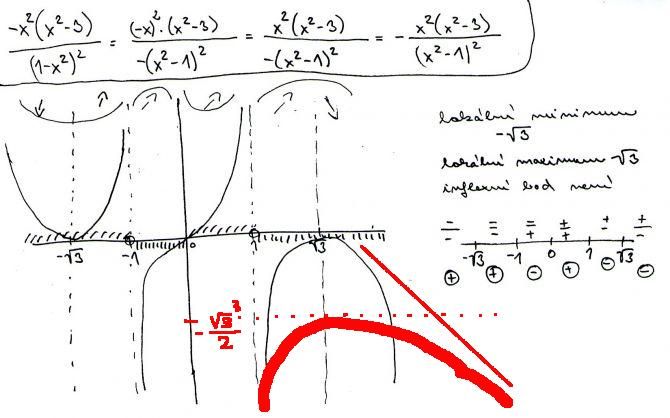 -x²(x²-3)/(1-x²)² = (-x)²·(x²-3)/-(x²-1)² = x²(x²-3)/-(x²-1)² = -x²(x²-3)/(x²-1)²
lokální minimum
-√3
lokální maximum √3
inflexní bod není
-√3 -1 0 1 √3
-√3 -1 0 1 √3
+ + - + - -
-√3³/2